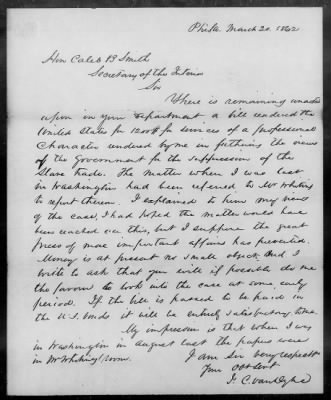 Phila. March 20. 1862
Hon Caleb B Smith
Secretary of the Interior
Sir
There is remaining unacted
upon in your Department a bill rendered the
United States for 1200$ for services of a professional
Character rendered by me in furthering the views
of the Government for the suppression of the
Slave trade. The matter when I was last
in Washington had been referred to Mr Whiting
to report thereon. I explained to him my views
of the case. I had hoped the matter would have
been reached ere this, but I suppose the great
press of more important affairs has prevented.
Money is at present no small object and I
write to ask that you will if possible do me
the favour to look into the case at some early
period. If the bill is passed to be paid in
the U.S. bonds it will be entirely satisfactory to me.
My impression is that when I was
in Washington in august last the papers were
in Mr Whitings room.
I am Sir very respect
Your obt Svt
J. C. VanDyke